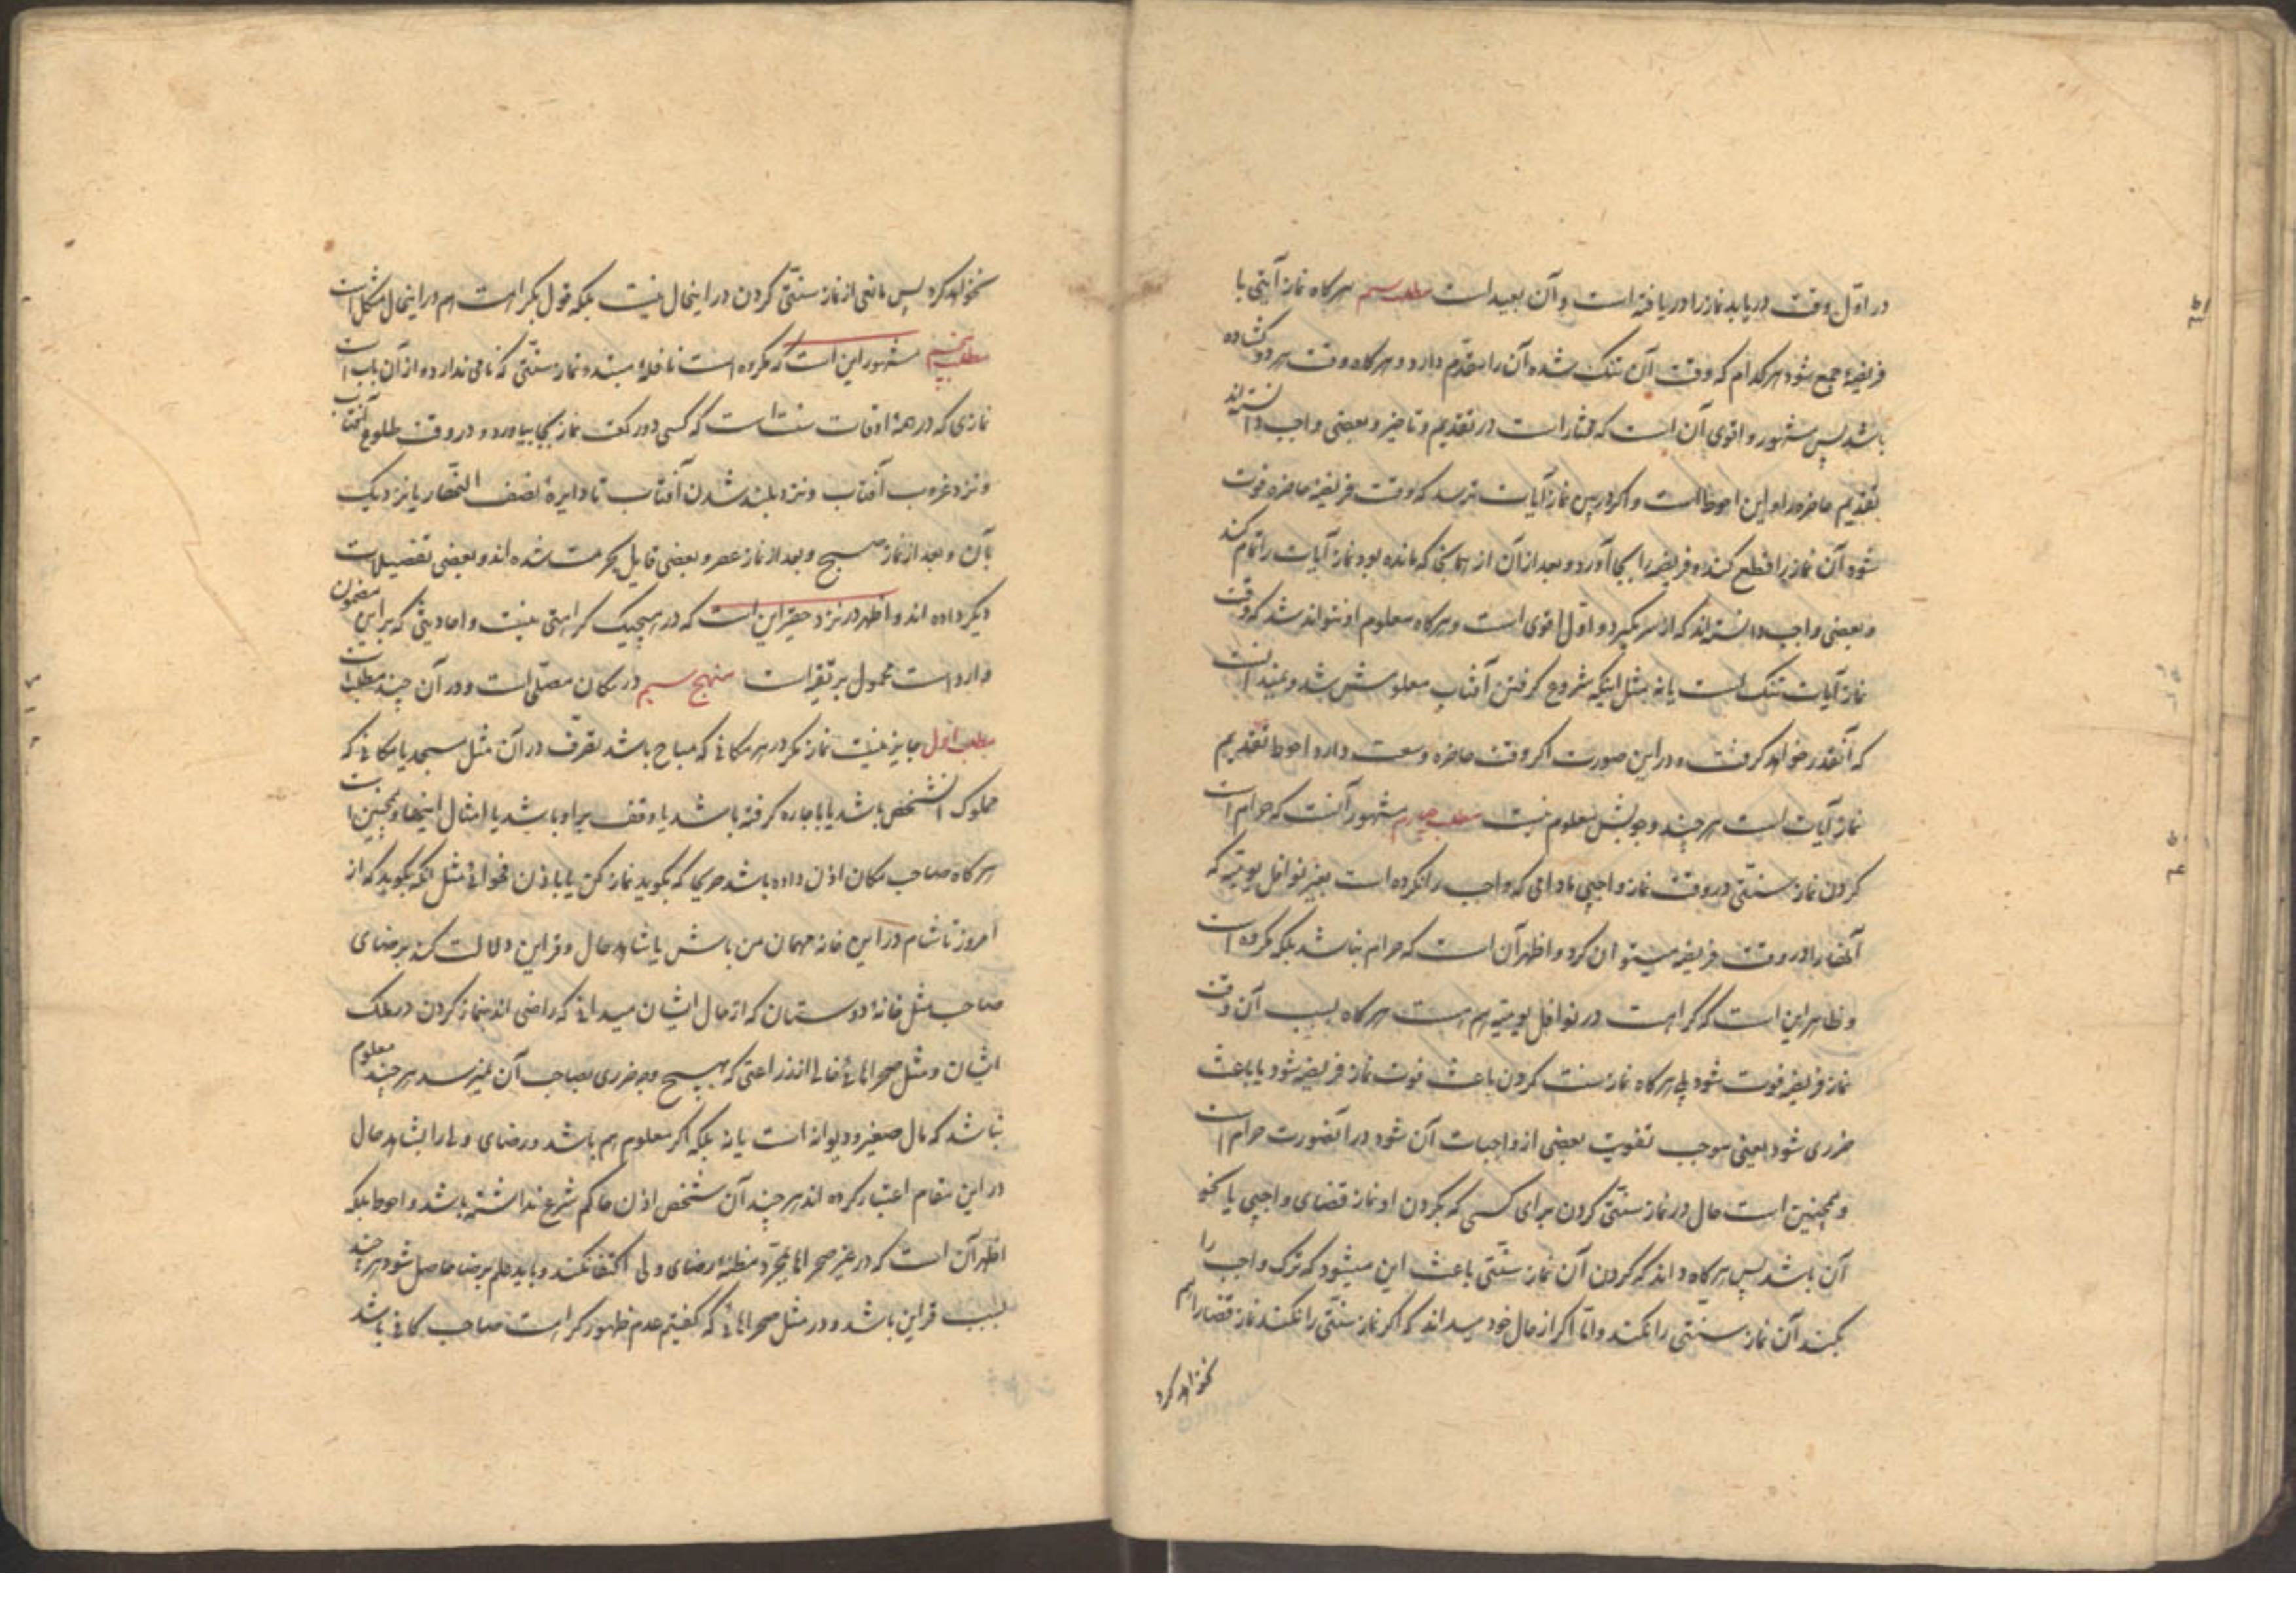 در اوّل وقت دریابد نماز را دریافته است و آن بعید است مطلب سیم هرکاه نماز آیتی با
فریضهٔ جمع شود هرکدام که وقت آن تنک شده آن را مقدّم دارد و هرکاه وقت هر دو کشاده
باشد پس مشهور و اقوی آن است که مختار است در تقدیم و تاخیر و بعضی واجب دانسته‌اند
تقدیم حاضره را و این احوط است و اکر در بین نماز آیات بترسد که وقت فریضهٔ حاضره فوت
شود آن نماز را قطع کند و فریضه را بجا آورد و بعد از آن از همانجا که مانده بود نماز آیات را تمام کند
و بعضی واجب دانسته‌اند که از سر بکیرد و اوّل اقوی است و هرکاه معلوم او نتواند شد که وقت
نماز آیات تنک است یا نه مثل اینکه شروع کرفتن آفتاب معلومش شد و نمیدانست
که آنقدر خواهد کرفت و در این صورت اکر وقت حاضره وسعت دارد احوط تقدیم
نماز آیات است هر چند وجوبش معلوم نیست مطلب چهارم مشهور آنست که حرام است
کردن نماز سنّتی در وقت نماز واجبی مادامی که واجب را نکرده است بغیر نوافل یومیّه که
آنها را در وقت فریضه میتوان کرد و اظهر آن است که حرام نباشد بلکه مکروه است
و ظاهر این است که کراهت در نوافل یومیّه هم هست هرکاه بسبب آن وقت
نماز فریضه فوت شود بلی هرکاه نماز سنت کردن باعث فوت نماز فریضه شود یا باعث
ضرری شود یعنی موجب تفویت بعضی از واجبات آن شود در آنصورت حرام است
و همچنین است حال در نماز سنّتی کردن برای کسی که بکردن او نماز قضای واجبی یا نحو
آن باشد پس هرکاه داند که کردن آن نماز سنّتی باعث این میشود که ترک واجب را
بکند آن نماز سنّتی را نکند و امّا اکر از حال خود میداند که اکر نماز سنّتی را نکند نماز قضا را هم
نخواهد کرد
نخواهد کرد پس مانعی از نماز سنّتی کردن در اینحال نیست بلکه قول بکراهت هم در اینحال مشکل است
مطلب پنجم مشهور این است که مکروه است نافلهٔ مبتدءه نماز سنّتی که نامی ندارد و از آن باب است
نمازی که در همهٔ اوقات سنت است که کسی دو رکعت نماز بجا بیاورد و در وقت طلوع آفتاب
و نزد غروب آفتاب و نزد بلند شدن آفتاب تا دایرهٔ نصف النّهار یا نزدیک
بآن و بعد از نماز صبح و بعد از نماز عصر و بعضی قایل بحرمت شده اند و بعضی تفصیلات
دیکر داده اند و اظهر در نزد حقیر این است که در هیچیک کراهتی نیست و احادیثی که بر این مضمون
وارد است محمول بر تقیّه است منهج سیم در مکان مصلّی است و در آن چند مطلب است
مطلب اول جایز نیست نماز مکر در هر مکانی که مباح باشد تصرّف در آن مثل مسجد یا مکانی که
مملوک آن شخص باشد یا باجاره کرفته باشد یا وقف بر او باشد یا امثال اینها و همچنین است
هرکاه صاحب مکان اذن داده باشد صریحا که بکوید نماز کن یا باذن فحوائی مثل آنکه بکوید که از
امروز تا شام در این خانه مهمان من باش یا شاهد حال و قراین دلالت کند بر رضای
صاحب مثل خانهٔ دوستان که از حال ایشان میدانی که راضی اند بنماز کردن در ملک
ایشان و مثل صحراهای خالی از زراعتی که بهیچ وجه ضرری بصاحب آن نمیرسد هر چند معلوم
نباشد که مال صغیر و دیوانه است یا نه بلکه اکر معلوم هم باشد و رضای ولی را بشاهد حال
در این مقام اعتبار کرده اند هر چند آن شخص اذن حاکم شرع نداشته باشد و احوط بلکه
اظهر آن است که در غیر صحراها بمجرّد مظنهٔ رضای ولی اکتفا نکند و باید علم برضا حاصل شود هر چند
بسبب قراین باشد و در مثل صحراهائی که کفتیم عدم ظهور کراهت صاحب کافی باشد